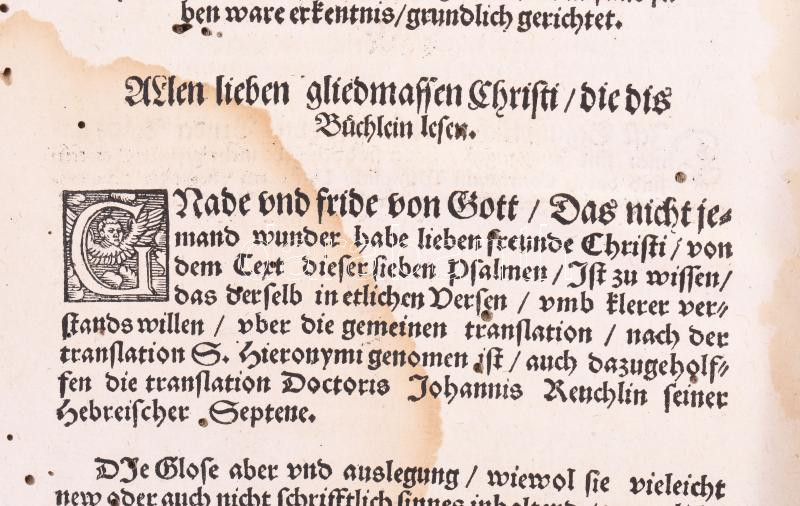 ben ware erkentnis/grundlich gerichtet.
ALlen lieben gliedmassen Christi / die dis
Büchlein lesen.
GNade vnd fride von Gott / Das nicht je⸗
mand wunder habe lieben freunde Christi / von
dem Text dieser sieben Psalmen / Ist zu wissen/
das derselb in etlichen Versen / vmb klerer ver⸗
stands willen / vber die gemeinen translation / nach der
translation S. Hieronymi genomen ist / auch dazugeholf⸗
fen die translation Doctoris Johannis Reuchlin seiner
Hebreischer Septene.
DIe Glose aber vnd auslegung / wiewol sie vieleicht
new oder auch nicht schrifftlich sinnes